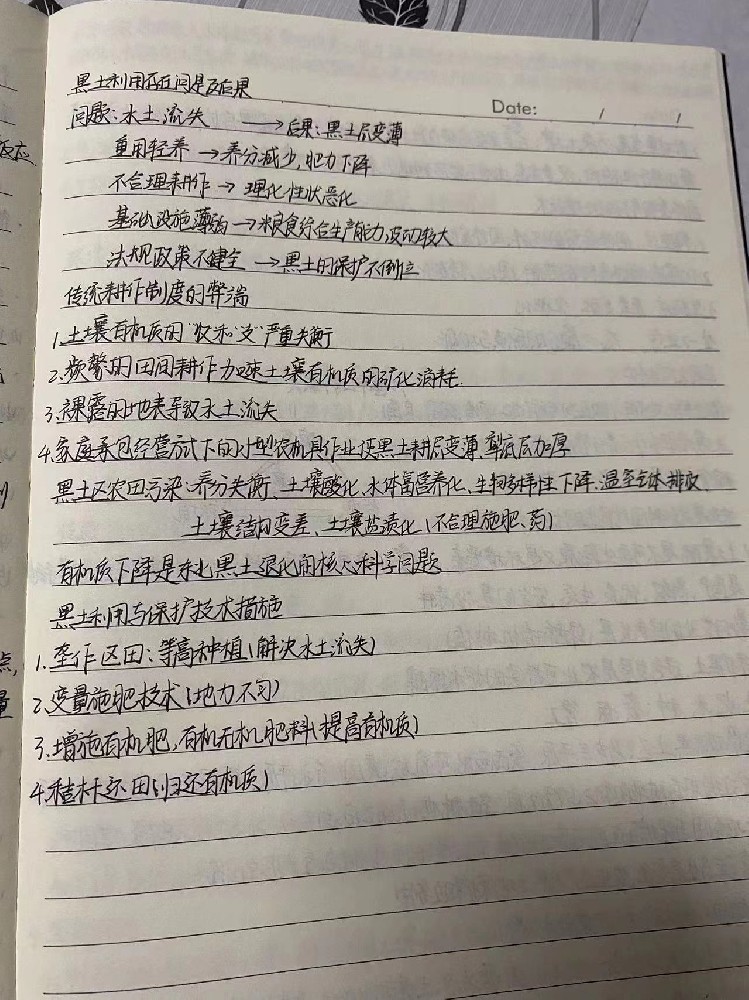 黑土利用存在问题及后果
Date: / /
问题:水土流失 → 后果:黑土层变薄
重用轻养 → 养分减少,肥力下降
不合理耕作 → 理化性状恶化
基础设施薄弱 → 粮食综合生产能力波动较大
法规政策不健全 → 黑土的保护不倒立
传统耕作制度的弊端
1.土壤有机质的“收”和“支”严重失衡
2.频繁的田间耕作加速土壤有机质的矿化消耗
3.裸露的地表导致水土流失
4.家庭承包经营方式下的小型农机具作业使黑土耕层变薄,犁底层加厚
黑土区农田污染:养分失衡、土壤酸化、水体富营养化、生物多样性下降、温室气体排放、
土壤结构变差、土壤盐渍化(不合理施肥、药)
有机质下降是东北黑土退化的核心科学问题
黑土利用与保护技术措施
1.垄作区田:等高种植(解决水土流失)
2.变量施肥技术(地力不匀)
3.增施有机肥,有机无机肥料(提高有机质)
4.秸秆还田(归还有机质)
反应
点,
量